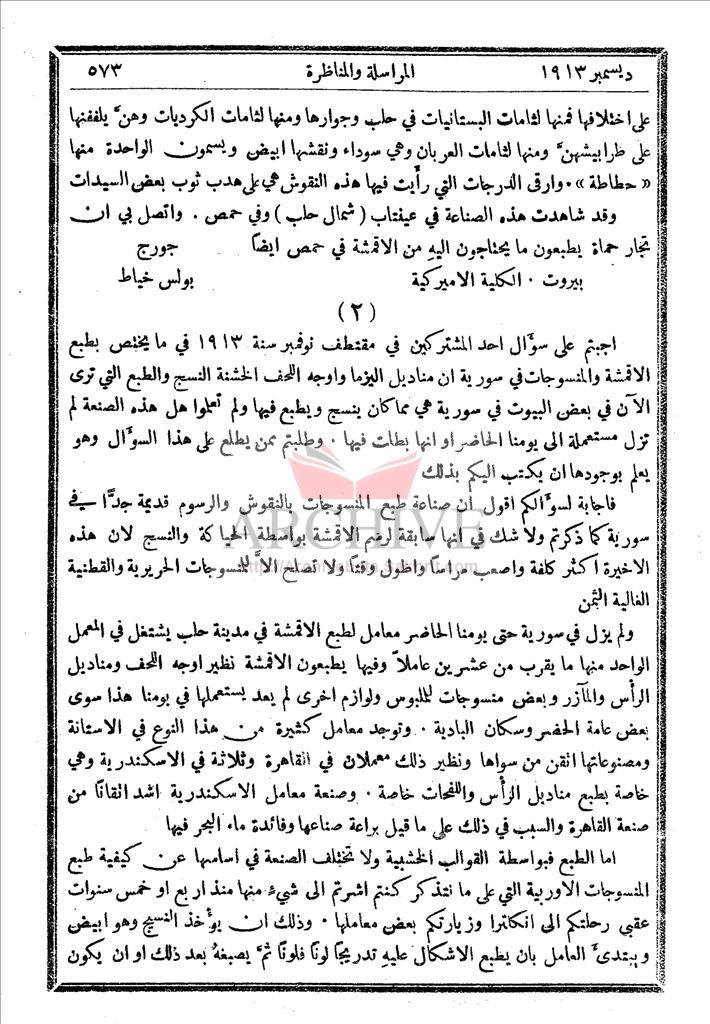 ديسمبر ١٩١٣ المراسلة والمناظرة ٥٧٣
على اختلافها فمنها لثامات البستانيات في حلب وجوارها ومنها لثامات الكرديات وهنَّ يلففنها
على طرابيشهنَّ ومنها لثامات العربان وهي سوداء ونقشها ابيض ويسمون الواحدة منها
« حطاطة » . وارقى الدرجات التي رأيت فيها هذه النقوش هي على هدب ثوب بعض السيدات
وقد شاهدت هذه الصناعة في عينتاب ( شمال حلب ) وفي حمص . واتصل بي ان
تجار حماة يطبعون ما يحتاجون اليهِ من الاقمشة في حمص ايضًا جورج
بيروت . الكلية الاميركية بولس خياط
( ٢ )
اجبتم على سؤال احد المشتركين في مقتطف نوفمبر سنة ١٩١٣ في ما يختص بطبع
الاقمشة والمنسوجات في سورية ان مناديل اليزما واوجه اللحف الخشنة النسج والطبع التي ترى
الآن في بعض البيوت في سورية هي مما كان ينسج ويطبع فيها ولم تعلموا هل هذه الصنعة لم
تزل مستعملة الى يومنا الحاضر او انها بطلت فيها . وطلبتم ممن يطلع على هذا السؤال وهو
يعلم بوجودها ان يكتب اليكم بذلك
فاجابة لسؤالكم اقول ان صناعة طبع المنسوجات بالنقوش والرسوم قديمة جدًّا في
سورية كما ذكرتم ولا شك في انها سابقة لرسم الاقمشة بواسطة الحياكة والنسج لان هذه
الاخيرة اكثر كلفة واصعب مراسًا واطول وقتًا ولا تصلح الاَّ للمنسوجات الحريرية والقطنية
الغالية الثمن
ARCHIVE
ولم يزل في سورية حتى يومنا الحاضر معامل لطبع الاقمشة في مدينة حلب يشتغل في المعمل
الواحد منها ما يقرب من عشرين عاملاً وفيها يطبعون الاقمشة نظير اوجه اللحف ومناديل
الرأس والمآزر وبعض منسوجات للملبوس ولوازم اخرى لم يعد يستعملها في يومنا هذا سوى
بعض عامة الحضر وسكان البادية . وتوجد معامل كثيرة من هذا النوع في الاستانة
ومصنوعاتها اتقن من سواها ونظير ذلك معملان في القاهرة وثلاثة في الاسكندرية وهي
خاصة بطبع مناديل الرأس واللفحات خاصة . وصنعة معامل الاسكندرية اشد اتقانًا من
صنعة القاهرة والسبب في ذلك على ما قيل براعة صناعها وفائدة ماء البحر فيها
اما الطبع فبواسطة القوالب الخشبية ولا تختلف الصنعة في اساسها عن كيفية طبع
المنسوجات الاوربية التي على ما نتذكر كنتم اشرتم الى شيءٍ منها منذ اربع او خمس سنوات
عقبي رحلتكم الى انكلترا وزيارتكم بعض معاملها . وذلك ان يؤخذ النسيج وهو ابيض
ويبتدىءُ العامل بان يطبع الاشكال عليهِ تدريجًا لونًا فلونًا ثمَّ يصبغهُ بعد ذلك او ان يكون